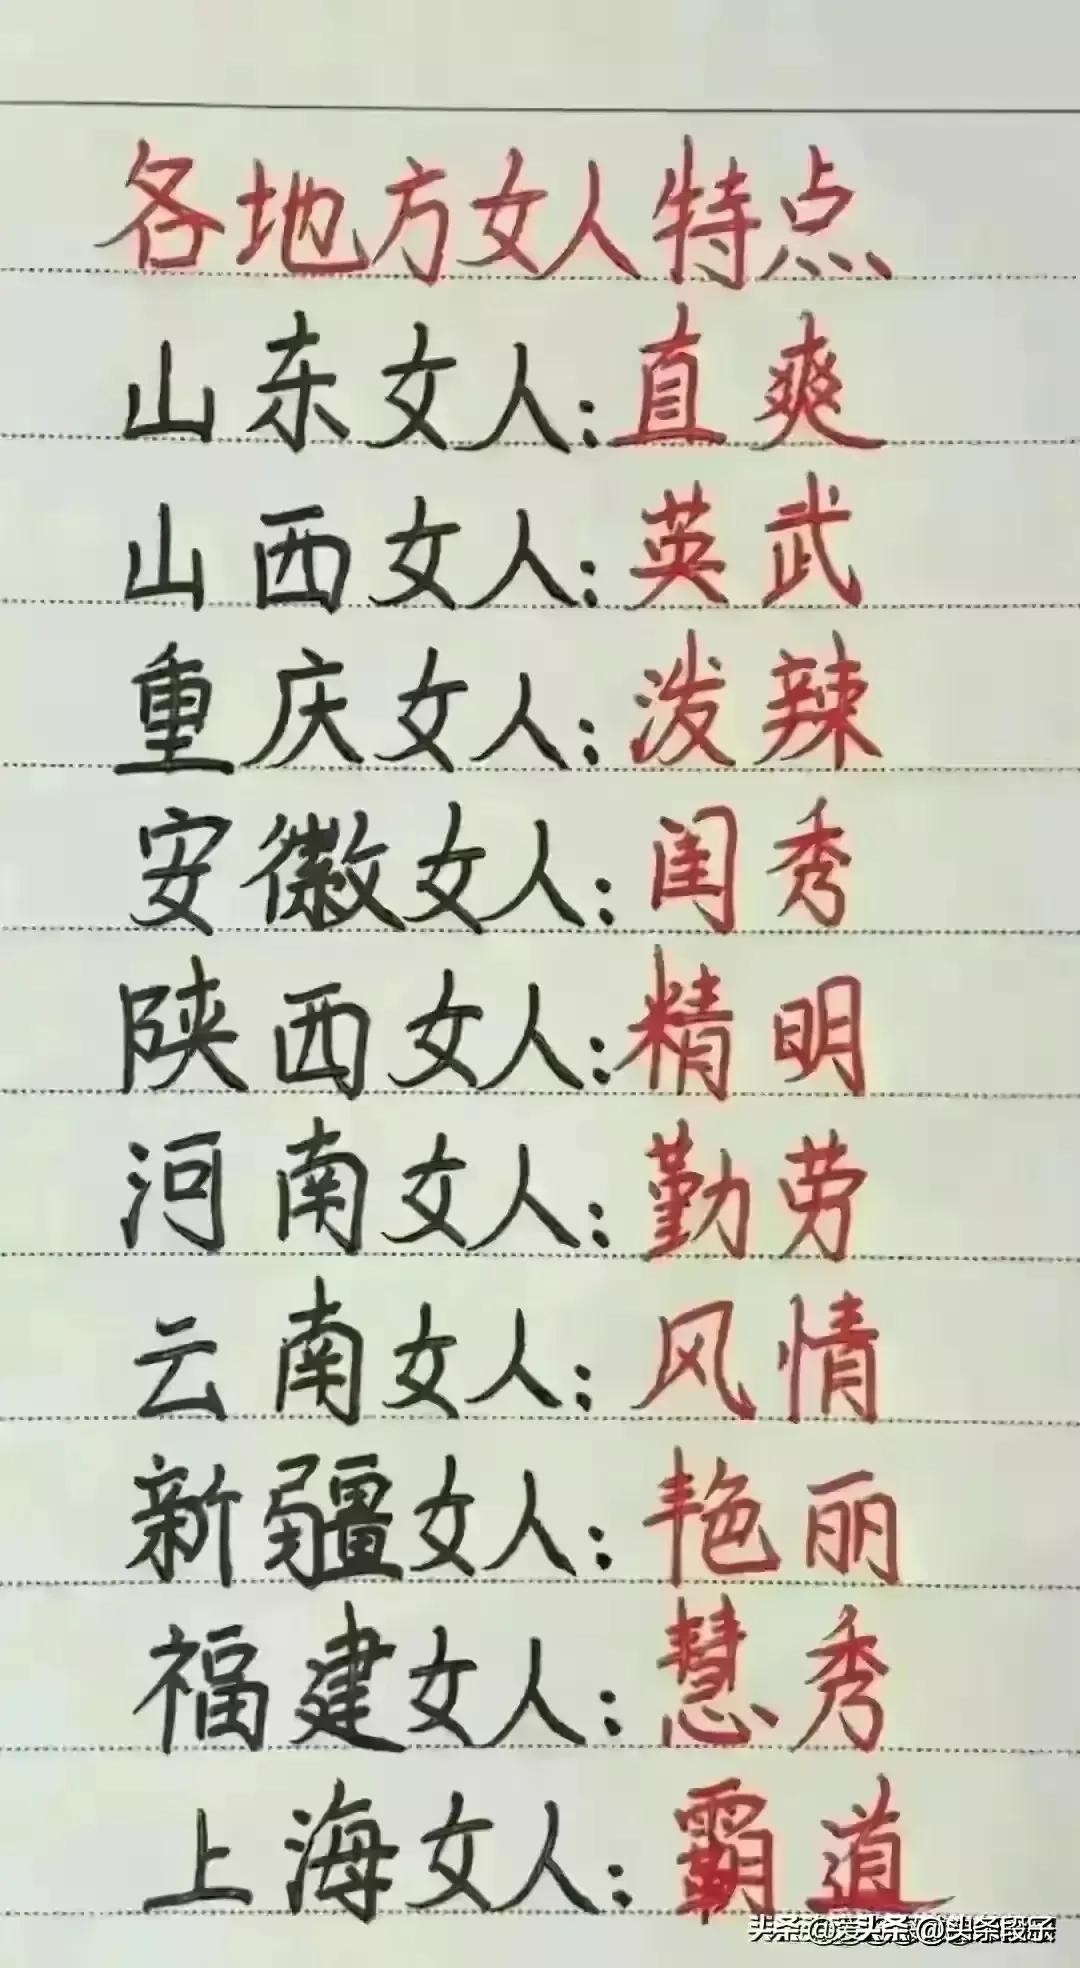 各地方女人特点
山东女人:直爽
山西女人:英武
重庆女人:泼辣
安徽女人:闺秀
陕西女人:精明
河南女人:勤劳
云南女人:风情
新疆女人:艳丽
福建女人:慧秀
上海女人:霸道
@头条段子